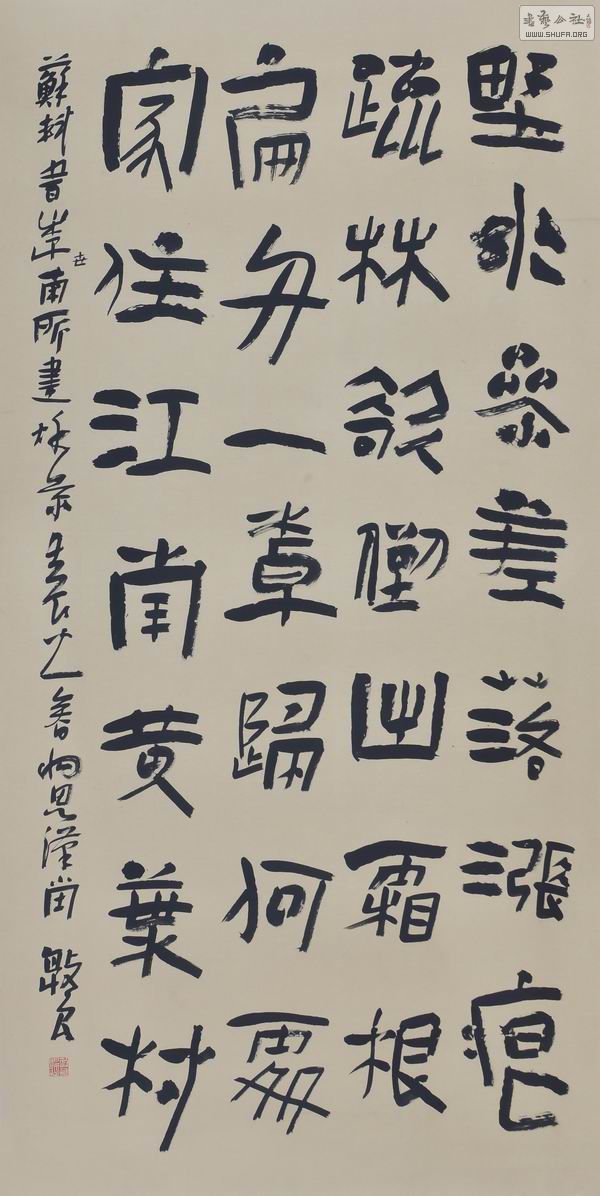 書藝公社
WWW.SHUFA.ORG
野水參差落漲痕
疏林欹倒出霜根
扁舟一卓歸何處
家住江南黄葉村
蘇軾書李世南所畫秋景